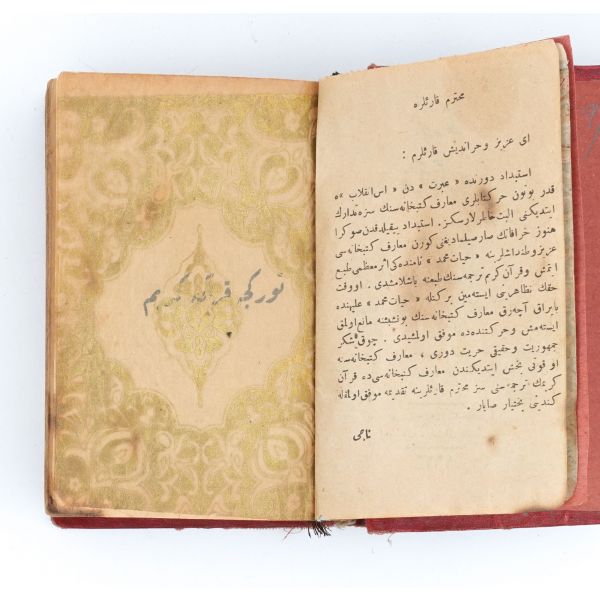 محترم قارئلره
ای عزیز و حراندیش قارئلرم :
استبداد دورنده « عبرت » دن « اس انقلاب » ه
قدر بوتون حر کتابلری معارف کتبخانه سنك سزه تدارك
ایتدیکنی البت خاطرلارسکز . استبداد ییقیلدقدن صوکرا
هنوز خرافاتك صارصیلمادیغنی کورن معارف کتبخانه سی
عزیز وطنداشلرینه « حیات محمد » نامنده کی اثر معظمی طبع
ایتمش و قرآن کرم ترجمه سنك طبعنه باشلامشدی . او وقت
حقك تظاهرینی ایسته مین بر کتله « حیات محمد » علیهنده
بایراق آچه رق معارف کتبخانه سنك بو تشبثنه مانع اولمق
ایسته مش و حرکتنده ده موفق اولمشیدی . چوق شکر
جمهوریت و حقیقی حریت دوری ، معارف کتبخانه سنه
او قوتی بخش ایتدیکندن معارف کتبخانه سی ده قرآن
کریمك ترجمه سنی سز محترم قارئلرینه تقدیمه موفق اولمقله
کندینی بختیار صایار .
ناجی
تورکجه قرآن کریم